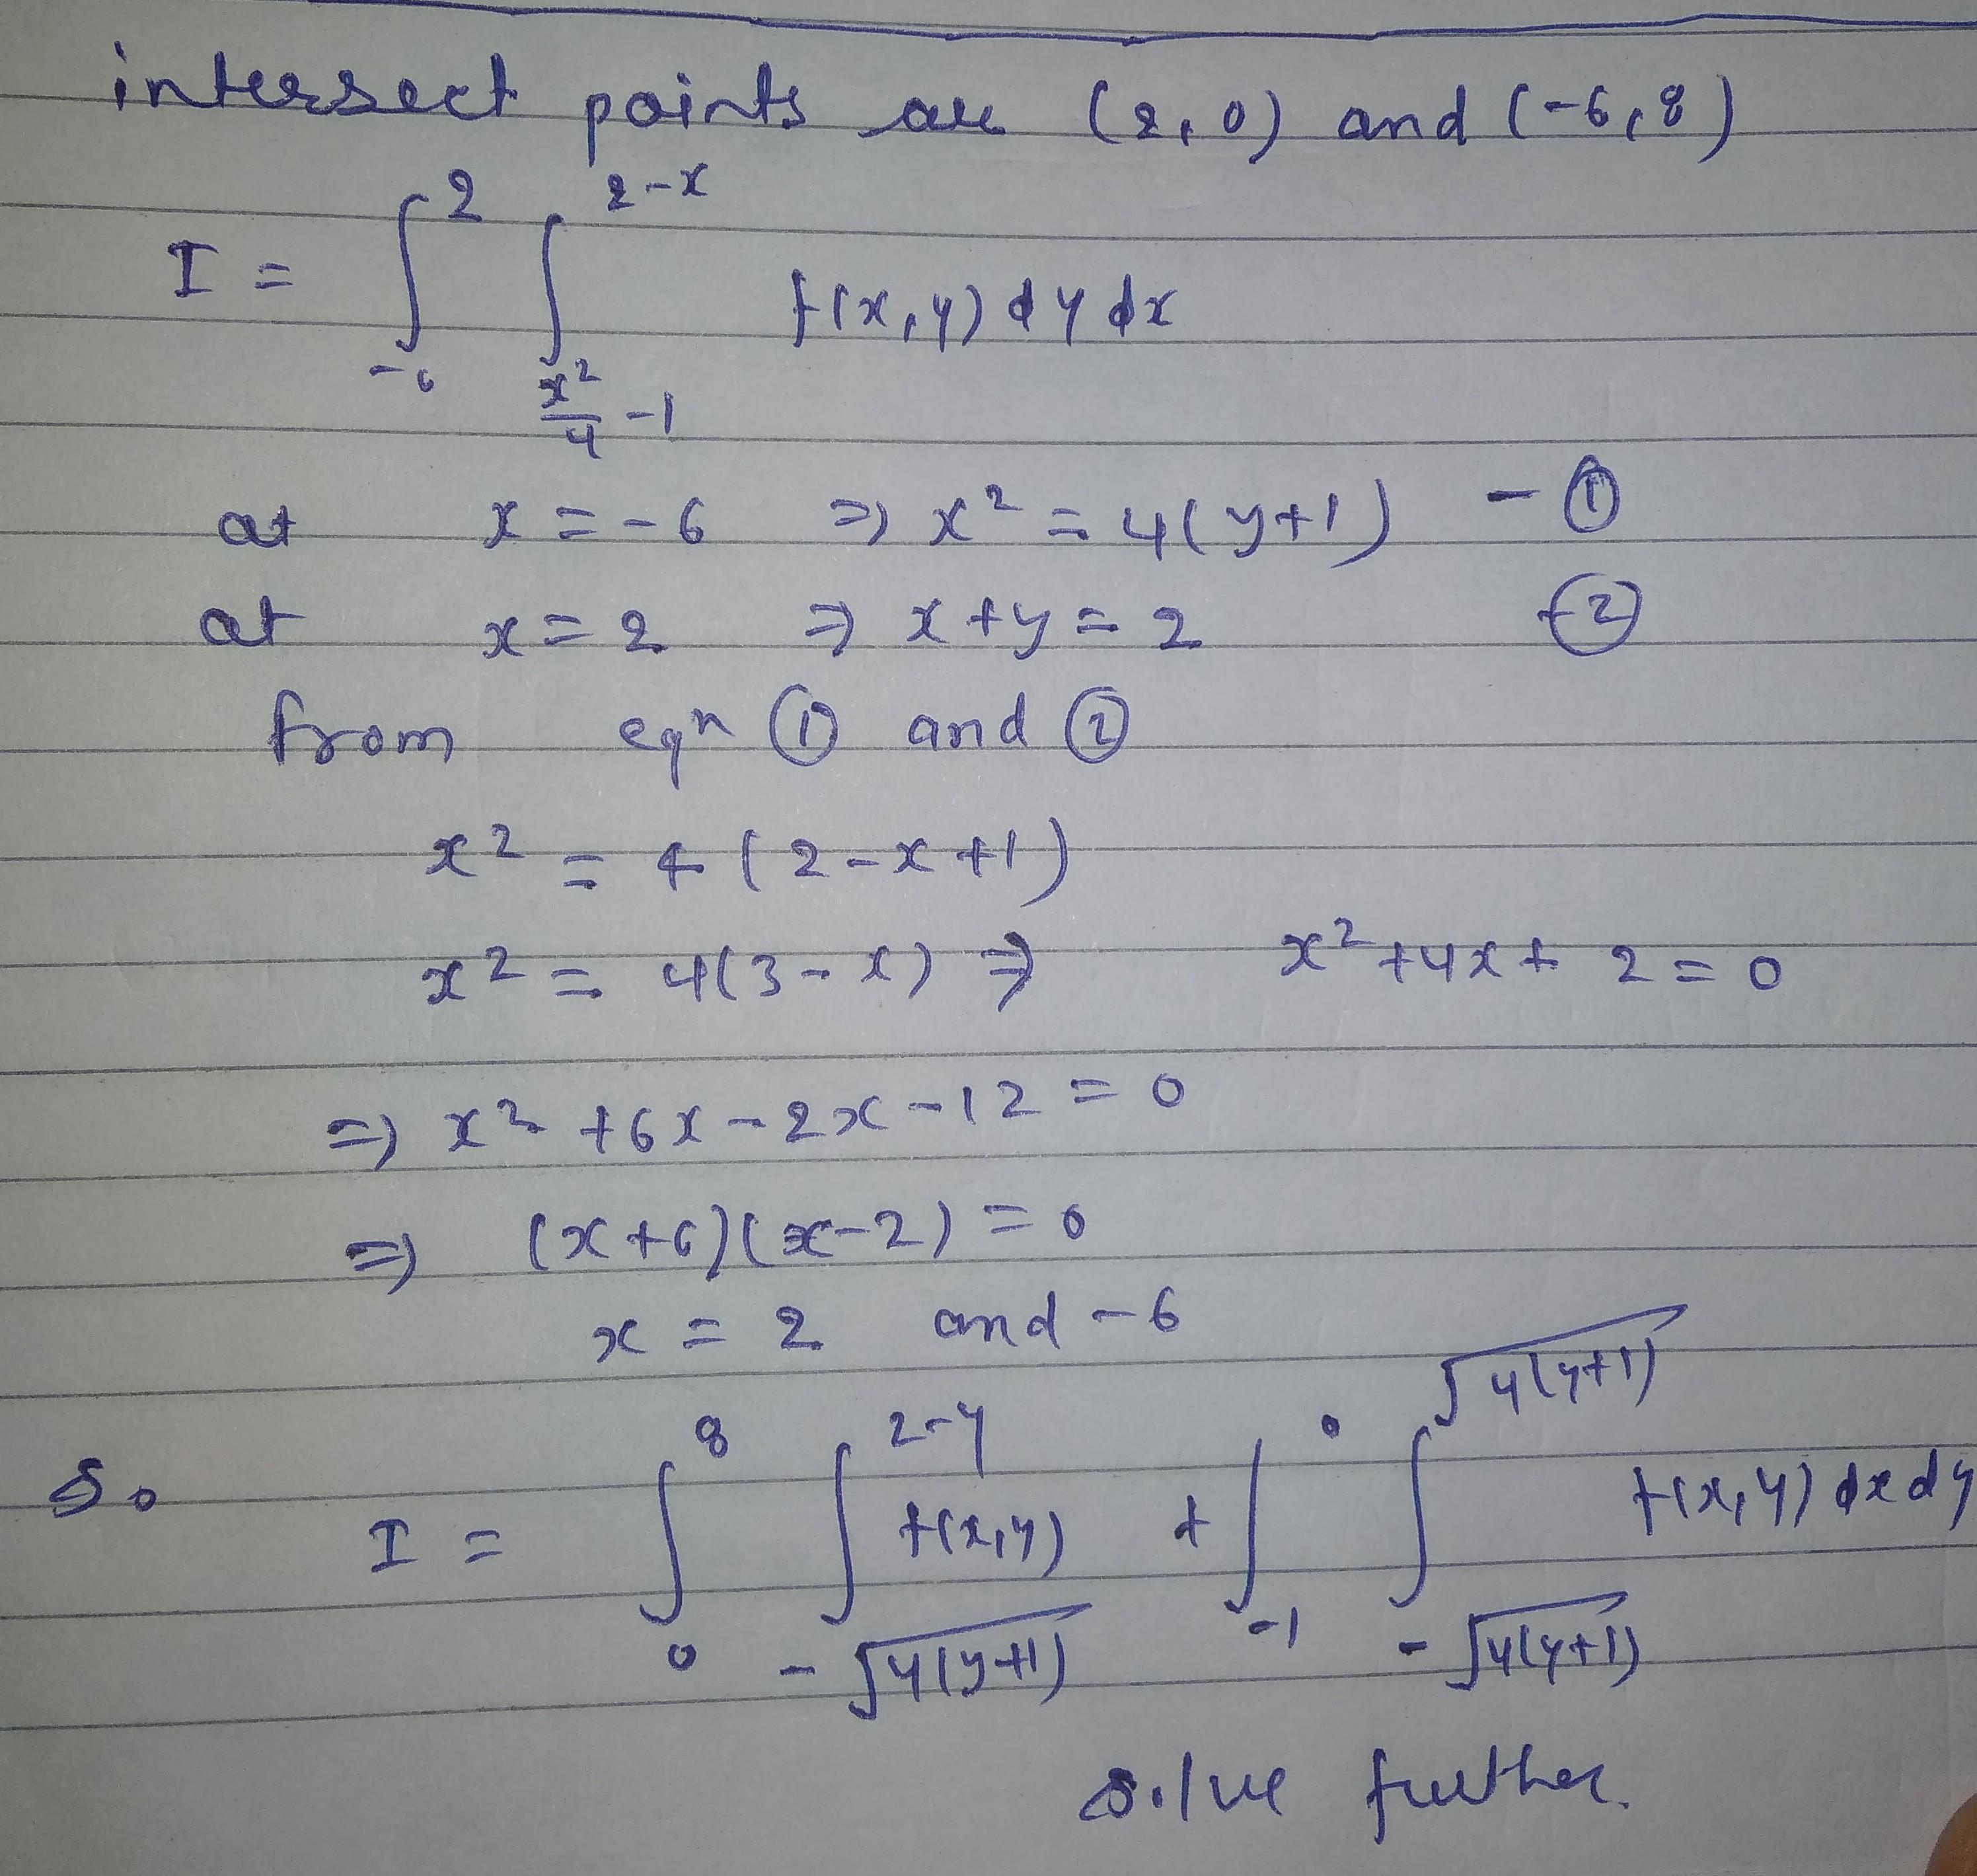 intersect points are (2,0) and (-6,8)
I = ∫_{-6}^{2} ∫_{x²/4 -1}^{2-x} f(x,y) dy dx
at x = -6 ⇒ x² = 4(y+1) - ①
at x = 2 ⇒ x+y = 2 - ②
from eqn ① and ②
x² = 4(2-x+1)
x² = 4(3-x) ⇒ x²+4x+2=0
⇒ x²+6x-2x-12 = 0
⇒ (x+6)(x-2) = 0
x = 2 and -6
So I = ∫_{0}^{8} ∫_{-√4(y+1)}^{2-y} f(x,y) + ∫_{-1}^{0} ∫_{-√4(y+1)}^{√4(y+1)} f(x,y) dx dy
solve further.